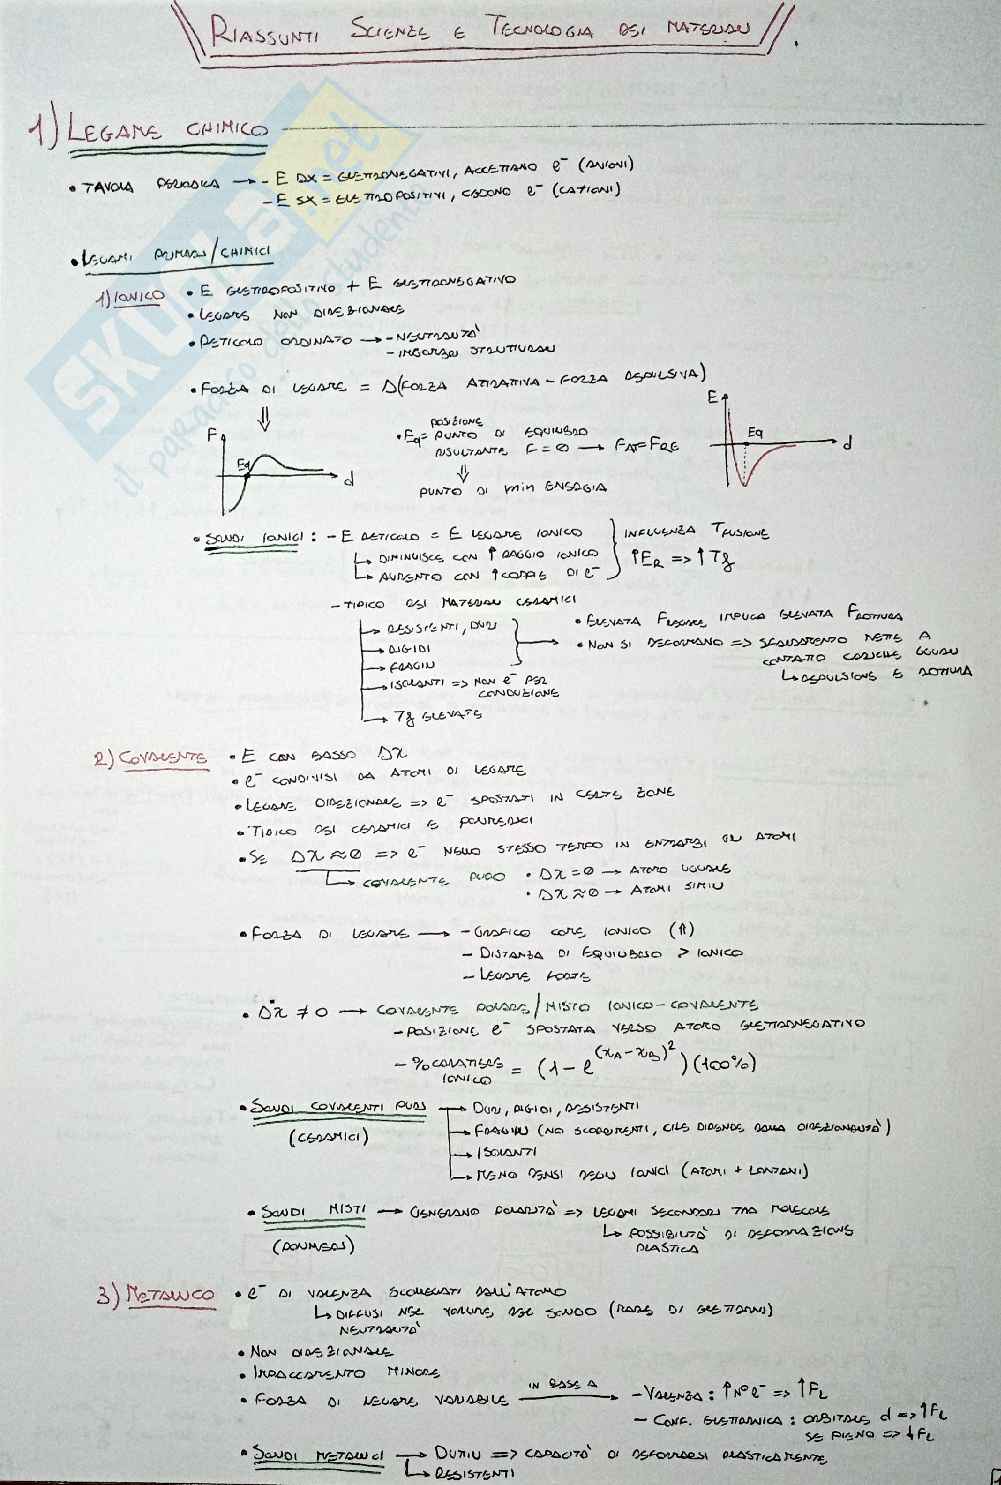 RIASSUNTI SCIENZE E TECNOLOGIA DEI MATERIALI
1) LEGAME CHIMICO
• TAVOLA PERIODICA → - E DX = ELETTRONEGATIVI, ACCETTANO e⁻ (ANIONI)
- E SX = ELETTROPOSITIVI, CEDONO e⁻ (CATIONI)
• LEGAMI PRIMARI/CHIMICI
1) IONICO • E ELETTROPOSITIVO + E ELETTRONEGATIVO
• LEGAME NON DIREZIONALE
• RETICOLO ORDINATO → - NEUTRALITÀ
- INGOMBRI STRUTTURALI
• FORZA DI LEGAME = Δ(FORZA ATTRATTIVA - FORZA REPULSIVA)
⇓
F Eq d
• Eq = POSIZIONE PUNTO DI EQUILIBRIO
RISULTANTE F = 0 → FAT = FRE
⇓
PUNTO DI min ENERGIA
E Eq d
• SOLIDI IONICI : - E RETICOLO = E LEGAME IONICO
↳ DIMINUISCE CON ↑ RAGGIO IONICO
↳ AUMENTO CON ↑ COPPIE DI e⁻
INFLUENZA TFUSIONE
↑ER => ↑Tf
- TIPICO DEI MATERIALI CERAMICI
→ RESISTENTI, DURI
→ RIGIDI
→ FRAGILI
→ ISOLANTI => NON e⁻ PER CONDUZIONE
→ Tf ELEVATE
• ELEVATA FLEGAME IMPLICA ELEVATA FROTTURA
• NON SI DEFORMANO => SCORRIMENTO METTE A
CONTATTO CARICHE UGUALI
↳ REPULSIONE E ROTTURA
2) COVALENTE • E CON BASSO Δχ
• e⁻ CONDIVISI DA ATOMI DI LEGAME
• LEGAME DIREZIONALE => e⁻ SPOSTATI IN CERTE ZONE
• TIPICO DEI CERAMICI E POLIMERICI
• SE Δχ ≈ 0 => e⁻ NELLO STESSO TEMPO IN ENTRAMBI GLI ATOMI
↳ COVALENTE PURO • Δχ = 0 → ATOMO UGUALE
• Δχ ≈ 0 → ATOMI SIMILI
• FORZA DI LEGAME → - GRAFICO COME IONICO (⇑)
- DISTANZA DI EQUILIBRIO > IONICO
- LEGAME FORTE
• Δχ ≠ 0 → COVALENTE POLARE/MISTO IONICO-COVALENTE
- POSIZIONE e⁻ SPOSTATA VERSO ATOMO ELETTRONEGATIVO
- % CARATTERE IONICO = (1 - e^(χA - χB)²)(100%)
• SOLIDI COVALENTI PURI → DURI, RIGIDI, RESISTENTI
(CERAMICI) → FRAGILI (NO SCORRIMENTI, CHE DIPENDE DALLA DIREZIONALITÀ)
→ ISOLANTI
→ MENO DENSI DEGLI IONICI (ATOMI + LONTANI)
• SOLIDI MISTI → GENERANO POLARITÀ => LEGAMI SECONDARI TRA MOLECOLE
(POLIMERI) ↳ POSSIBILITÀ DI DEFORMAZIONE PLASTICA
3) METALLICO • e⁻ DI VALENZA SCOLLEGATI DALL'ATOMO
↳ DIFFUSI NEL VOLUME DEL SOLIDO (MARE DI ELETTRONI)
NEUTRALITÀ
• NON DIREZIONALE
• IMPACCAMENTO MINORE
• FORZA DI LEGAME VARIABILE IN BASE A → - VALENZA : ↑ N° e⁻ => ↑FL
- CONF. ELETTRONICA : ORBITALE d => ↑FL
SE PIENO => ↓FL
• SOLIDI METALLICI → DUTTILI => CAPACITÀ DI DEFORMARSI PLASTICAMENTE
↳ RESISTENTI
1
SKUOLA.net
il paradiso dello studente